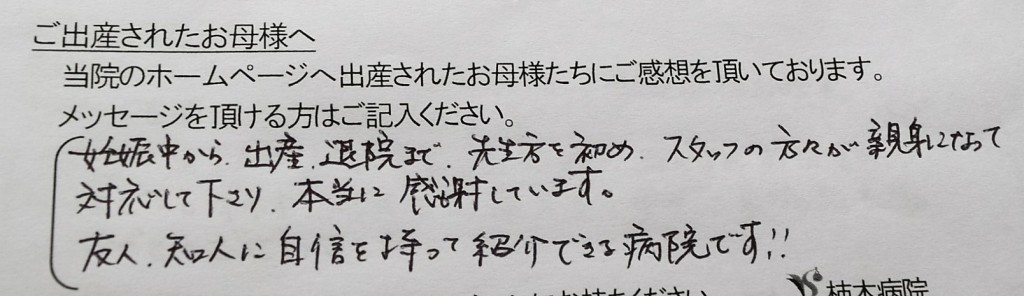 ご出産されたお母様へ
当院のホームページへ出産されたお母様たちにご感想を頂いております。
メッセージを頂ける方はご記入ください。
妊娠中から、出産、退院まで、先生方を初め、スタッフの方々が親身になって
対応して下さり、本当に感謝しています。
友人、知人に自信を持って紹介できる病院です!!
柿本病院